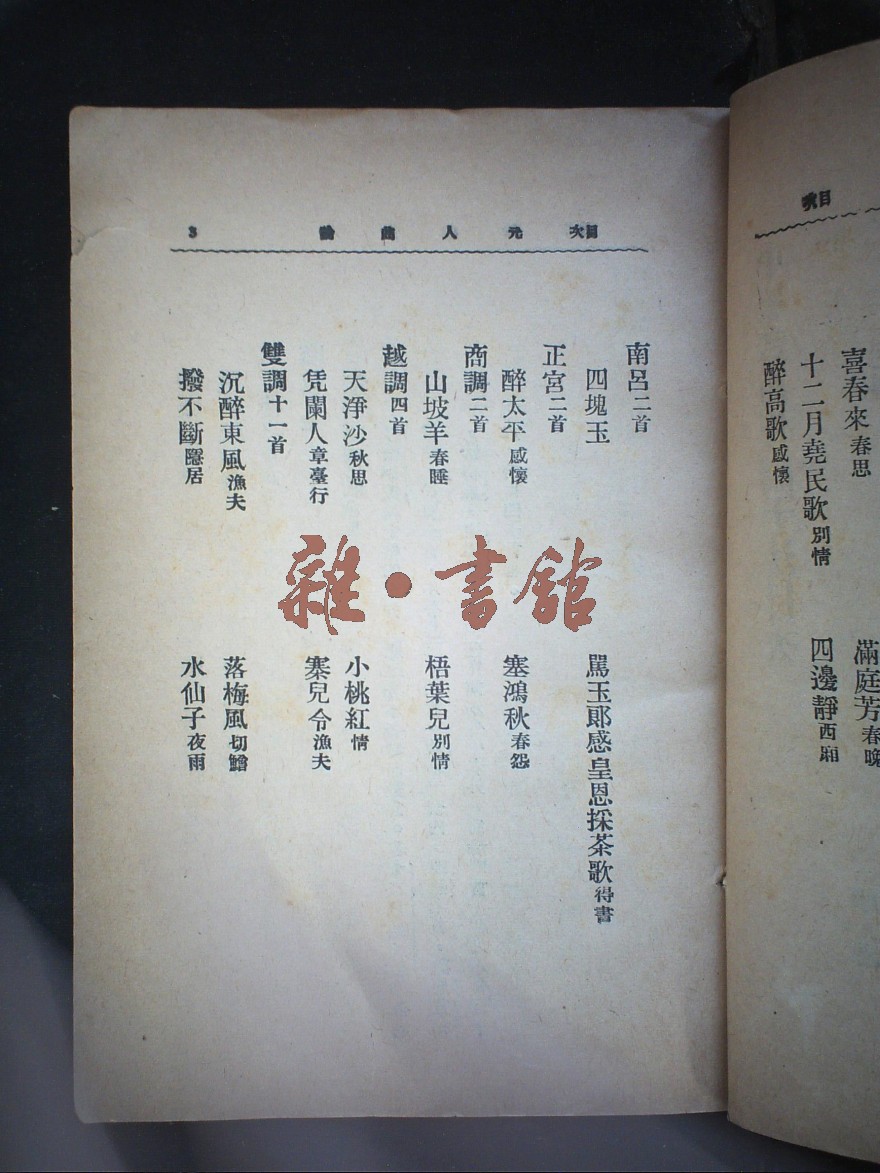 目次
喜春來 春思　滿庭芳 春晚
十二月堯民歌 別情　四邊靜 西廂
醉高歌 感懷
目次　元人　3
南呂 二首
四塊玉　罵玉郎感皇恩採茶歌 得書
正宮 二首
醉太平 感懷　塞鴻秋 春怨
商調 二首
山坡羊 春睡　梧葉兒 別情
越調 四首
天淨沙 秋思　小桃紅 情
凭闌人 章臺行　寨兒令 漁夫
雙調 十一首
沉醉東風 漁夫　落梅風 切鱠
撥不斷 隱居　水仙子 夜雨
雜·書館